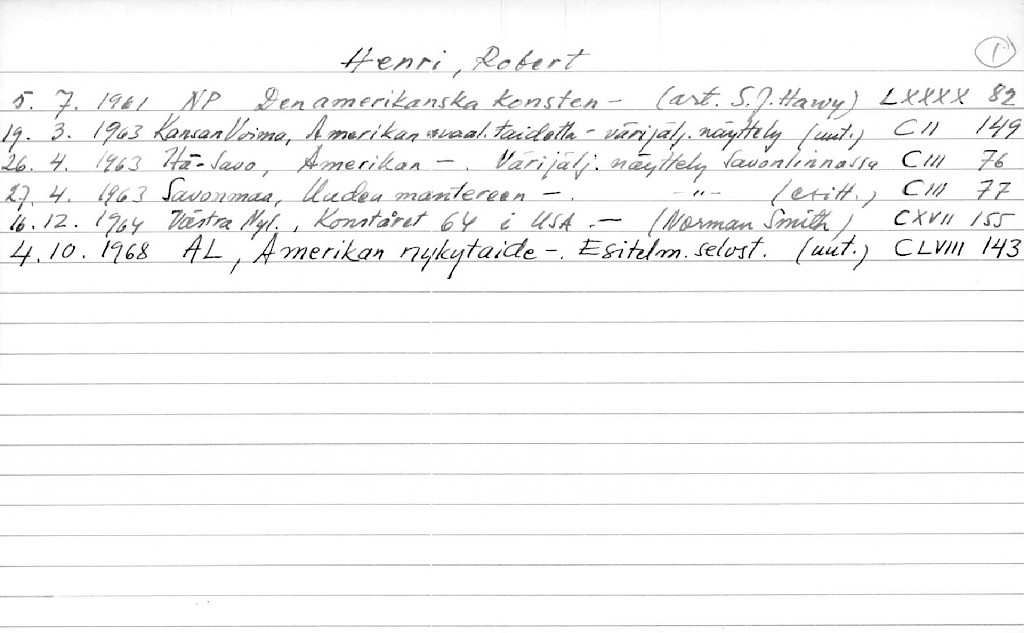 Henri, Robert 1
5. 7. 1961 NP Den amerikanska konsten - (art. S.J. Hawy) LXXXX 82
19. 3. 1963 Kansan Voima, Amerikan maal. taidetta - värijälj. näyttely (uut.) CII 149
26. 4. 1963 Itä-Savo, Amerikan -. Värijälj. näyttely Savonlinnassa CIII 76
27. 4. 1963 Savonmaa, Uuden mantereen -. -"- (esitt.) CIII 77
16. 12. 1964 Västra Nyl., Konståret 64 i USA. - (Norman Smith) CXVII 155
4. 10. 1968 AL, Amerikan nykytaide -. Esitelm. selost. (uut.) CLVIII 143